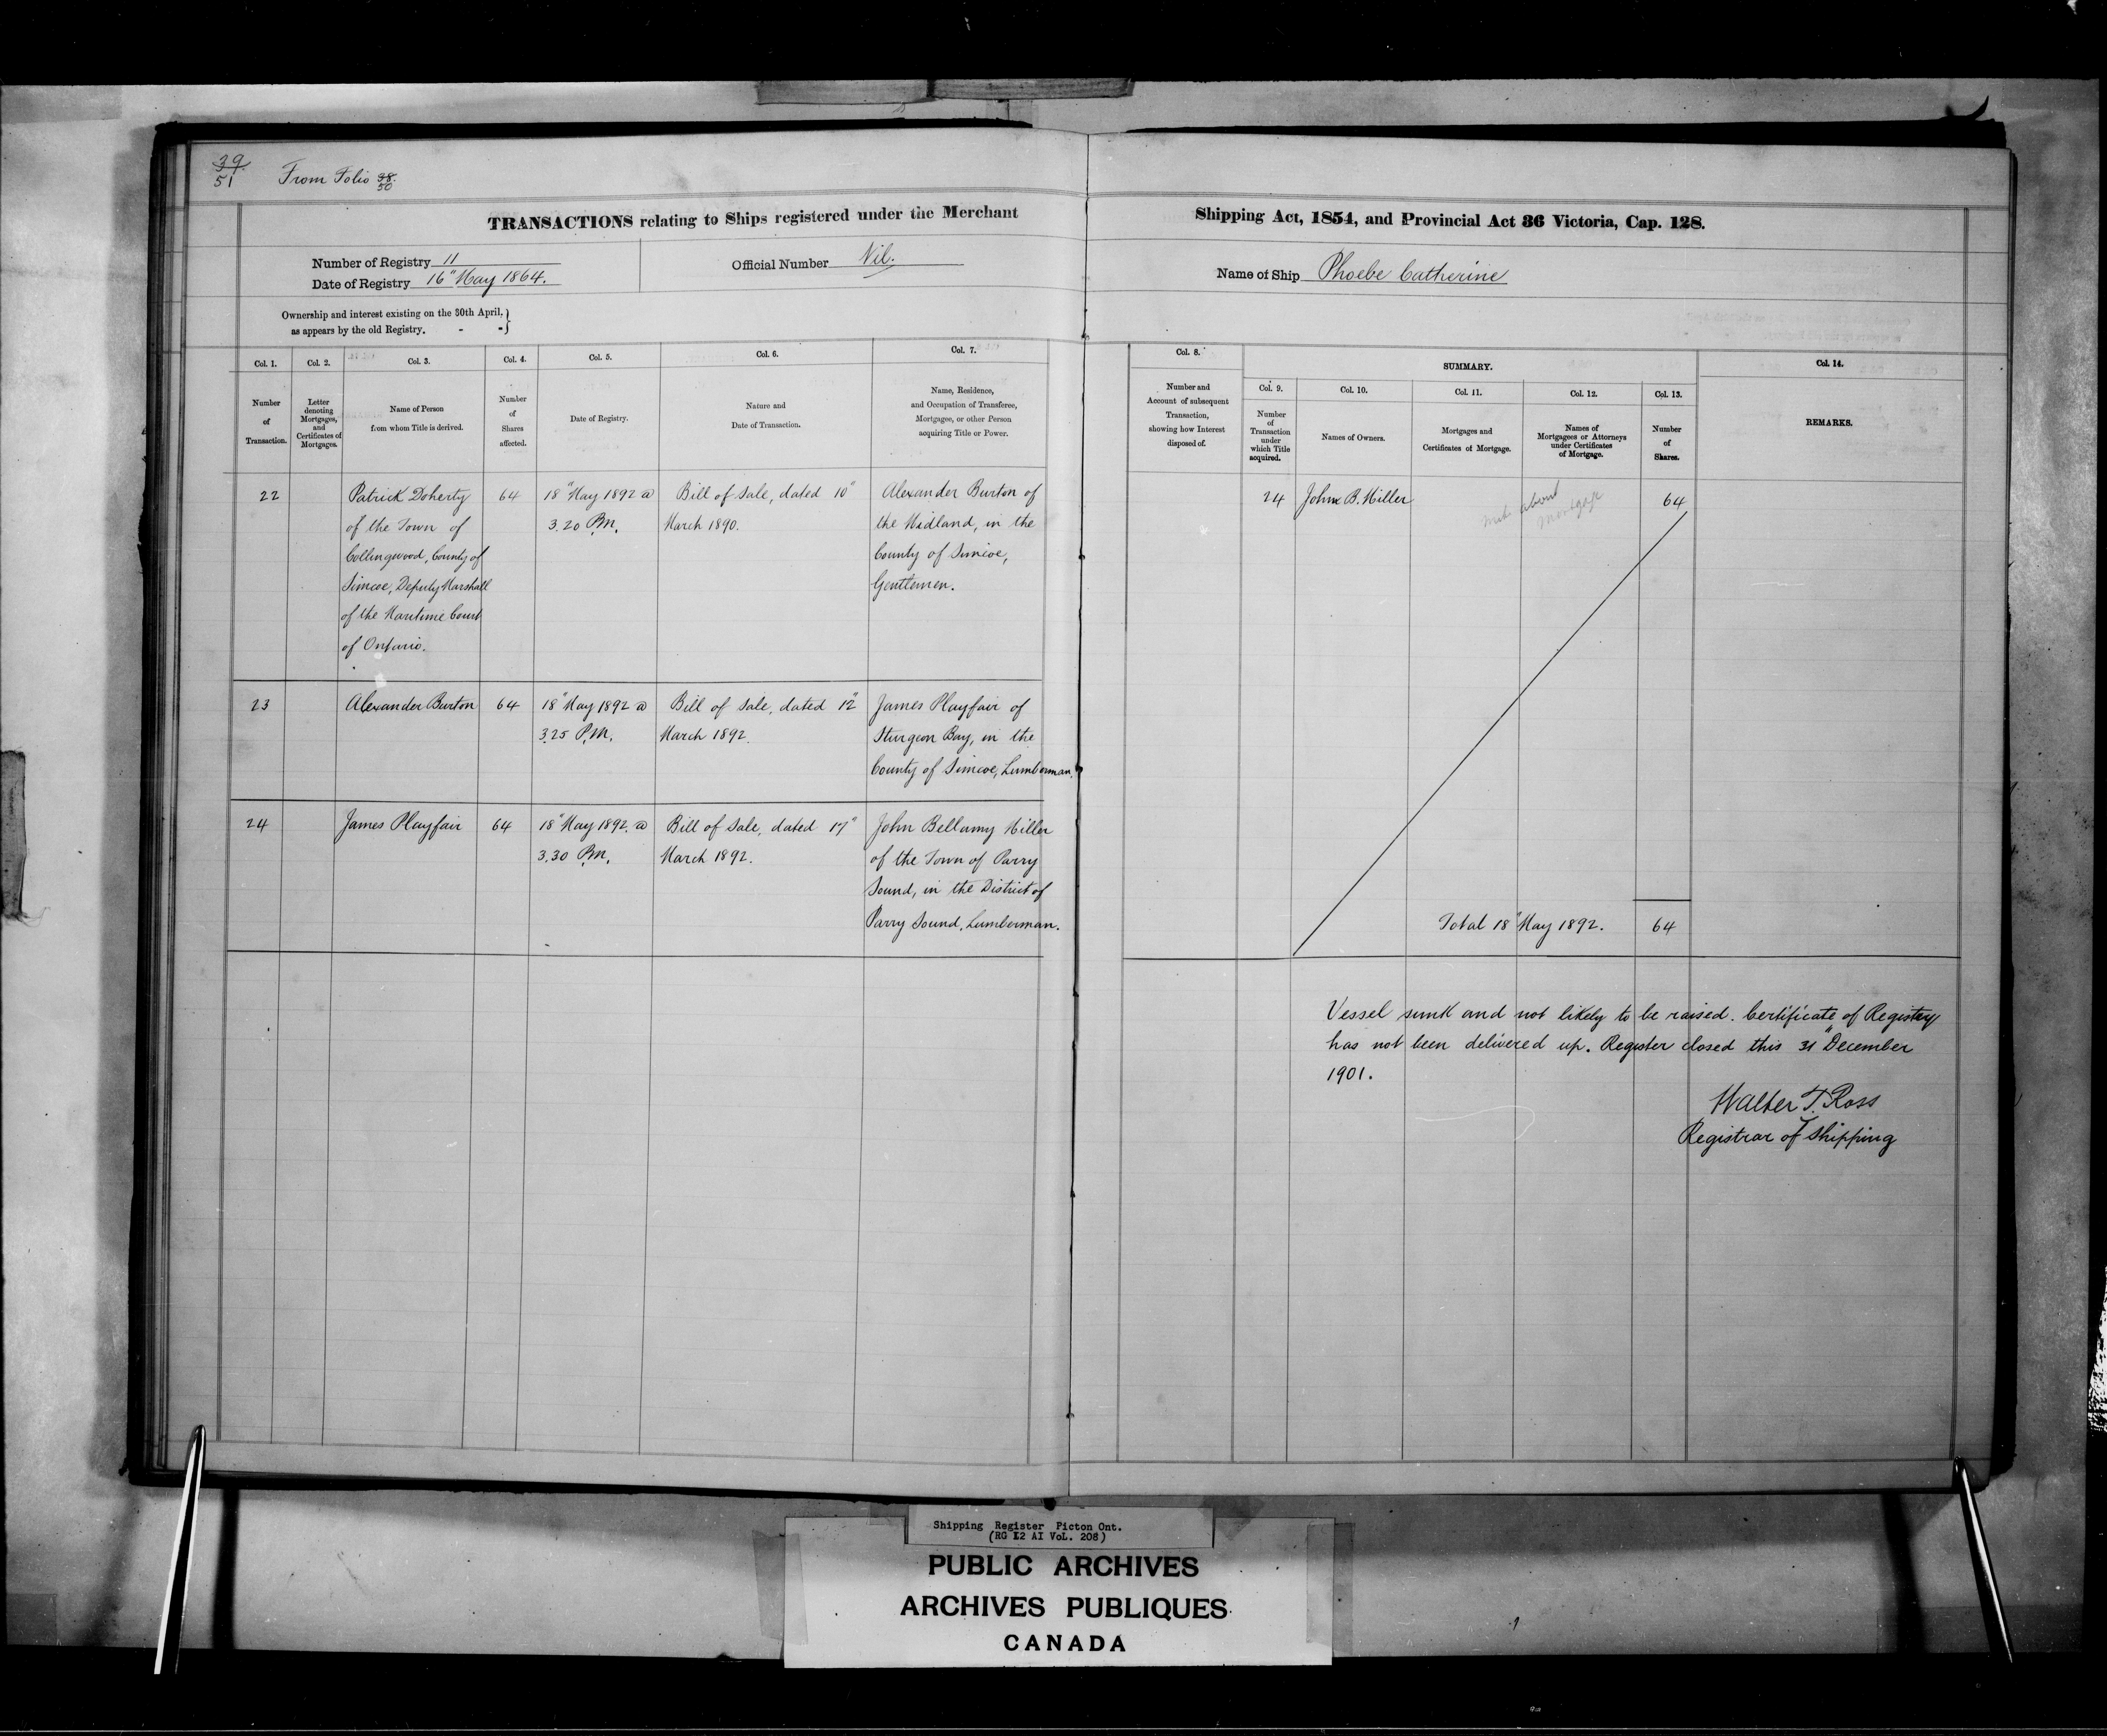 39
51
From Folio 38
50
TRANSACTIONS relating to Ships registered under the Merchant
Shipping Act, 1854, and Provincial Act 36 Victoria, Cap. 128.
Number of Registry 11
Date of Registry 16" May 1864.
Official Number Nil.
Name of Ship Phoebe Catherine
Ownership and interest existing on the 30th April,
as appears by the old Registry. - -
Col. 1.
Number
of
Transaction.
Col. 2.
Letter
denoting
Mortgages,
and
Certificates of
Mortgages.
Col. 3.
Name of Person
from whom Title is derived.
Col. 4.
Number
of
Shares
affected.
Col. 5.
Date of Registry.
Col. 6.
Nature and
Date of Transaction.
Col. 7.
Name, Residence,
and Occupation of Transferee,
Mortgagee, or other Person
acquiring Title or Power.
Col. 8.
Number and
Account of subsequent
Transaction,
showing how Interest
disposed of.
SUMMARY.
Col. 9.
Number
of
Transaction
under
which Title
acquired.
Col. 10.
Names of Owners.
Col. 11.
Mortgages and
Certificates of Mortgage.
Col. 12.
Names of
Mortgagees or Attorneys
under Certificates
of Mortgage.
Col. 13.
Number
of
Shares.
Col. 14.
REMARKS.
22
Patrick Doherty
of the Town of
Collingwood, County of
Simcoe, Deputy Marshall
of the Maritime Court
of Ontario.
64
18" May 1892 @
3.20 P.M.
Bill of Sale, dated 10"
March 1890.
Alexander Burton of
the Midland, in the
County of Simcoe,
Gentlemen.
23
Alexander Burton
64
18" May 1892 @
3.25 P.M.
Bill of Sale, dated 12"
March 1892.
James Playfair of
Sturgeon Bay, in the
County of Simcoe, Lumberman.
24
James Playfair
64
18" May 1892. @
3.30 P.M.
Bill of Sale, dated 17"
March 1892.
John Bellamy Miller
of the Town of Parry
Sound, in the District of
Parry Sound, Lumberman.
24
John B. Miller
about
mortgage
64
Total 18" May 1892.
64
Vessel sunk and not likely to be raised. Certificate of Registry
has not been delivered up. Register closed this 31" December
1901.
Walter T. Ross
Registrar of Shipping
Shipping Register Picton Ont.
(RG 12 AI VoL. 208)
PUBLIC ARCHIVES
ARCHIVES PUBLIQUES
CANADA